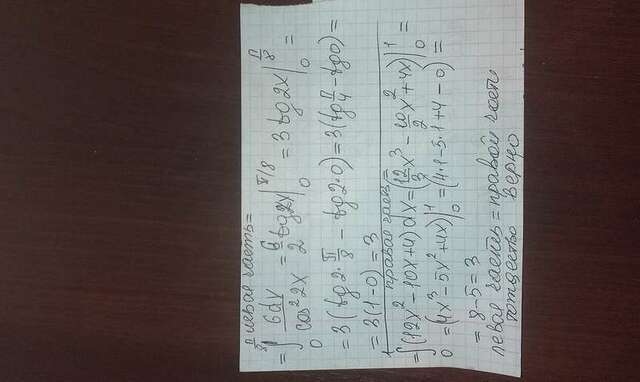 левая часть=
= ∫₀^{π/8} 6dx/cos²2x = 6/2 tg2x |₀^{π/8} = 3tg2x |₀^{π/8} =
= 3(tg2·π/8 − tg2·0) = 3(tg π/4 − tg0) =
= 3(1−0) = 3
правая часть=
= ∫₀¹ (12x² − 10x + 4) dx = (12/3 x³ − 10/2 x² + 4x) |₀¹ =
= (4x³ − 5x² + 4x) |₀¹ = (4·1 − 5·1 + 4 − 0) =
= 8−5 = 3
левая часть = правой части
тождество верно